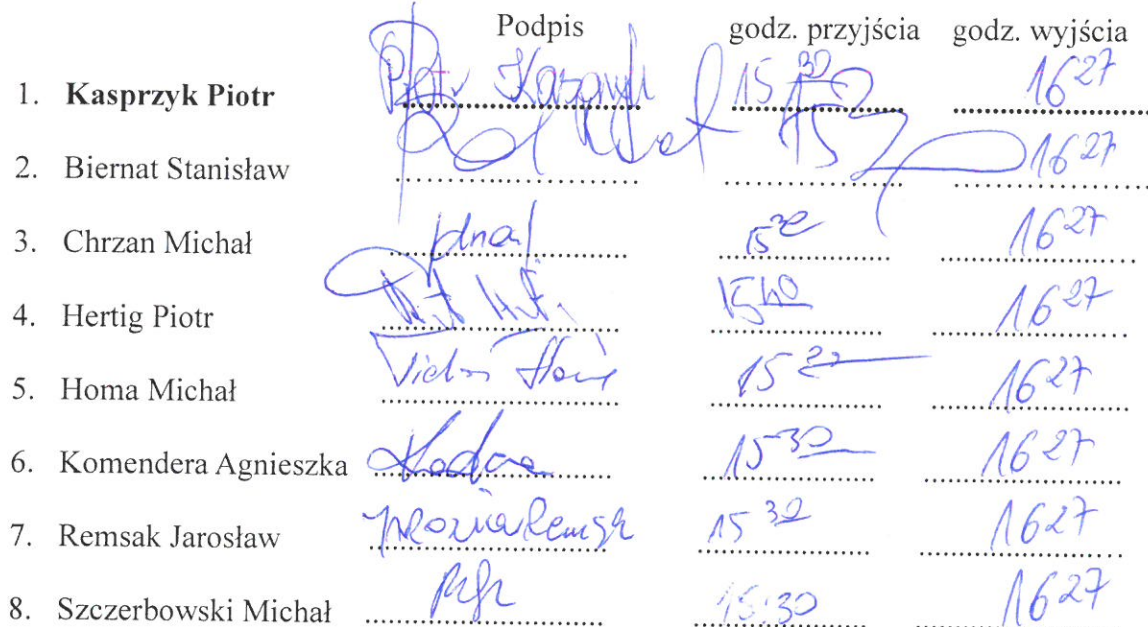 Podpis godz. przyjścia godz. wyjścia
1. Kasprzyk Piotr Piotr Kasprzyk 15 30 16 27
2. Biernat Stanisław 16 27
3. Chrzan Michał 15 30 16 27
4. Hertig Piotr 15 40 16 27
5. Homa Michał 15 16 27
6. Komendera Agnieszka 15 30 16 27
7. Remsak Jarosław 15 30 16 27
8. Szczerbowski Michał 15:30 16 27